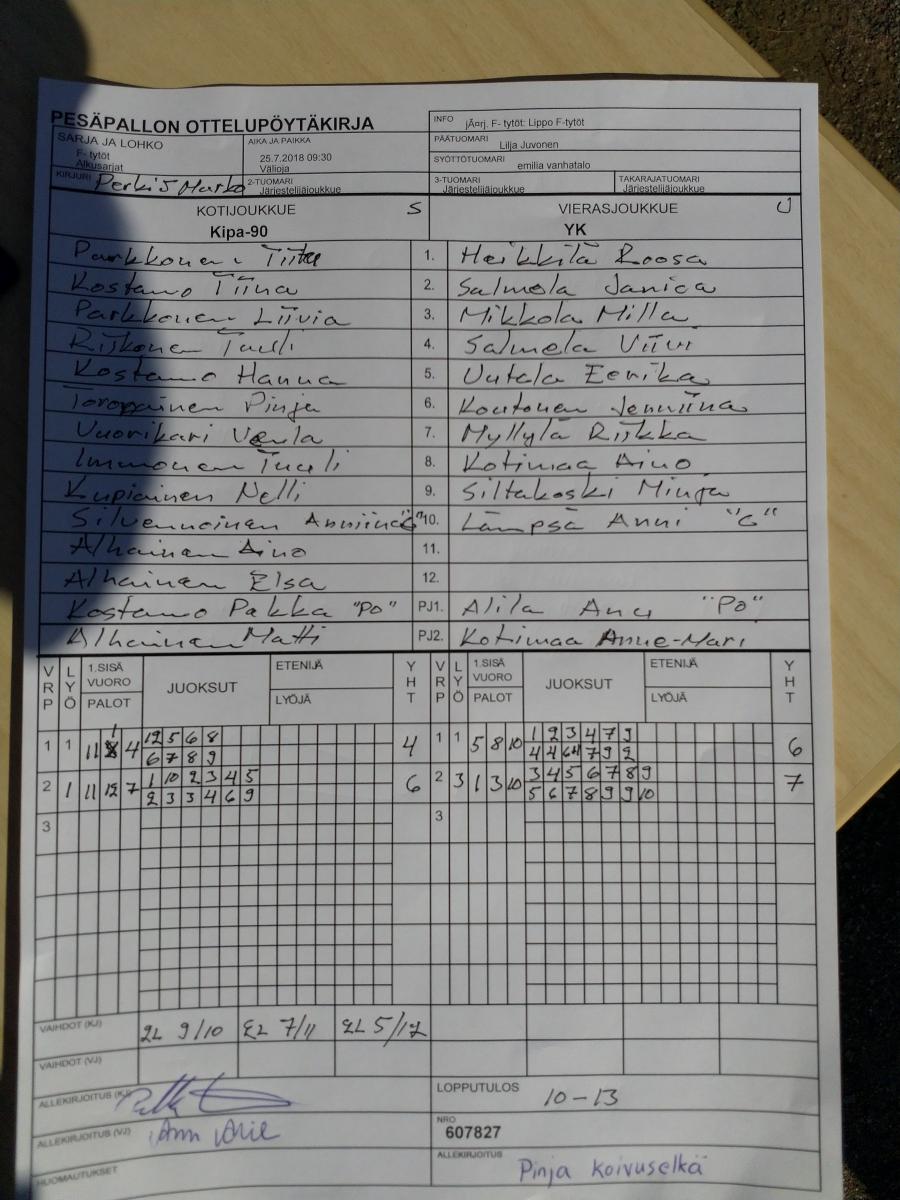 PESÄPALLON OTTELUPÖYTÄKIRJA
INFO jÃ¤rj. F- tytöt: Lippo F-tytöt
SARJA JA LOHKO F- tytöt Alkusarjat
AIKA JA PAIKKA 25.7.2018 09:30 Välioja
PÄÄTUOMARI Lilja Juvonen
SYÖTTÖTUOMARI emilia vanhatalo
KIRJURI Marko
2-TUOMARI Järjestelijäjoukkue
3-TUOMARI Järjestelijäjoukkue
TAKARAJATUOMARI Järjestelijäjoukkue
KOTIJOUKKUE S VIERASJOUKKUE U
Kipa-90 YK
Parkkonen Tiitu 1. Heikkilä Roosa
Kostamo Tiina 2. Salmela Janica
Parkkonen Liivia 3. Mikkola Milla
Riikonen Tuuli 4. Salmela Viivi
Kostamo Hanna 5. Uutela Eerika
Toropainen Pinja 6. Koutonen Jenniina
Vuorikari Veula 7. Myllylä Riikka
Immonen Tuuli 8. Kotimaa Aino
Kupiainen Nelli 9. Siltakoski Minja
Silvennoinen Anniina "G" 10. Lämpsä Anni "G"
Alhainen Aino 11.
Alhainen Elsa 12.
Kostamo Pekka "PO" PJ1. Alila Anu "PO"
Alhainen Matti PJ2. Kotimaa Anne-Mari
VRP LYÖ 1.SISÄ VUORO PALOT JUOKSUT ETENIJÄ LYÖJÄ YHT VRP LYÖ 1.SISÄ VUORO PALOT JUOKSUT ETENIJÄ LYÖJÄ YHT
1 1 11 1 4 12 5 6 8 4 1 1 5 8 10 1 2 3 4 7 9 6
6 7 8 9 4 4 6 7 9 2
2 1 11 12 7 1 10 2 3 4 5 6 2 3 1 3 10 3 4 5 6 7 8 9 7
2 3 3 4 6 9 5 6 7 8 9 9 10
3 3
VAIHDOT (KJ) 2L 9/10 2L 7/11 2L 5/12
VAIHDOT (VJ)
ALLEKIRJOITUS (KJ)
LOPPUTULOS 10-13
ALLEKIRJOITUS (VJ)
NRO 607827
HUOMAUTUKSET
ALLEKIRJOITUS Pinja Koivuselkä